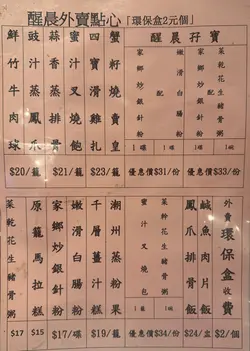 醒晨外賣點心「環保盒2元個」
鮮竹牛肉球
豉汁蒸鳳爪
蒜香蒸排骨
蜜汁叉燒飽
四寶滑雞扎
蟹籽燒賣皇
醒晨孖寶
家鄉炒銀針粉
1碟
配
嫩滑白腸粉
1碟
配
菜乾花生豬骨粥
1碗
$20/籠
$21/籠
$23/籠
優惠價$31/份
優惠價$33/份
菜乾花生豬骨粥
原籠馬拉糕
家鄉炒銀針粉
嫩滑白腸粉
千層薑汁糕
潮州蒸粉果
蜜汁叉燒包
配
菜乾花生豬骨粥
鳳爪排骨飯
鹹魚肉片飯
外賣環保盒收費
$17
$15
$17/碟
$19/籠
優惠價$34/份
$24/盅
$2/個